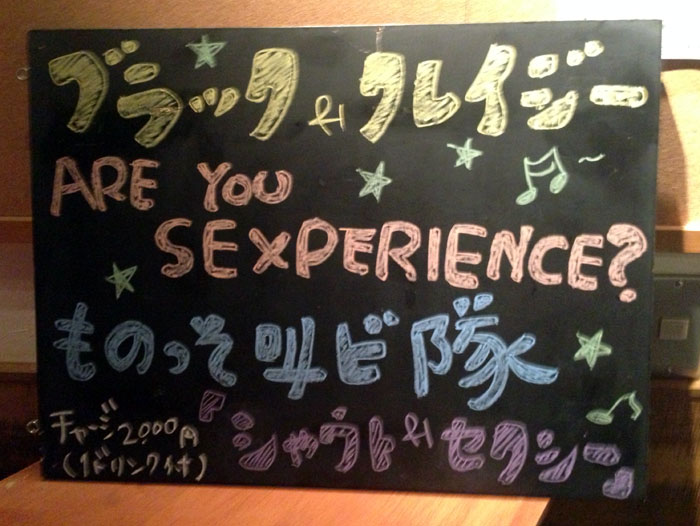 ブラック & クレイジー
ARE YOU
SEXPERIENCE?
ものっそ叫ビ隊
『シャウト & セクシー』
チャージ2,000円
(1ドリンク付)